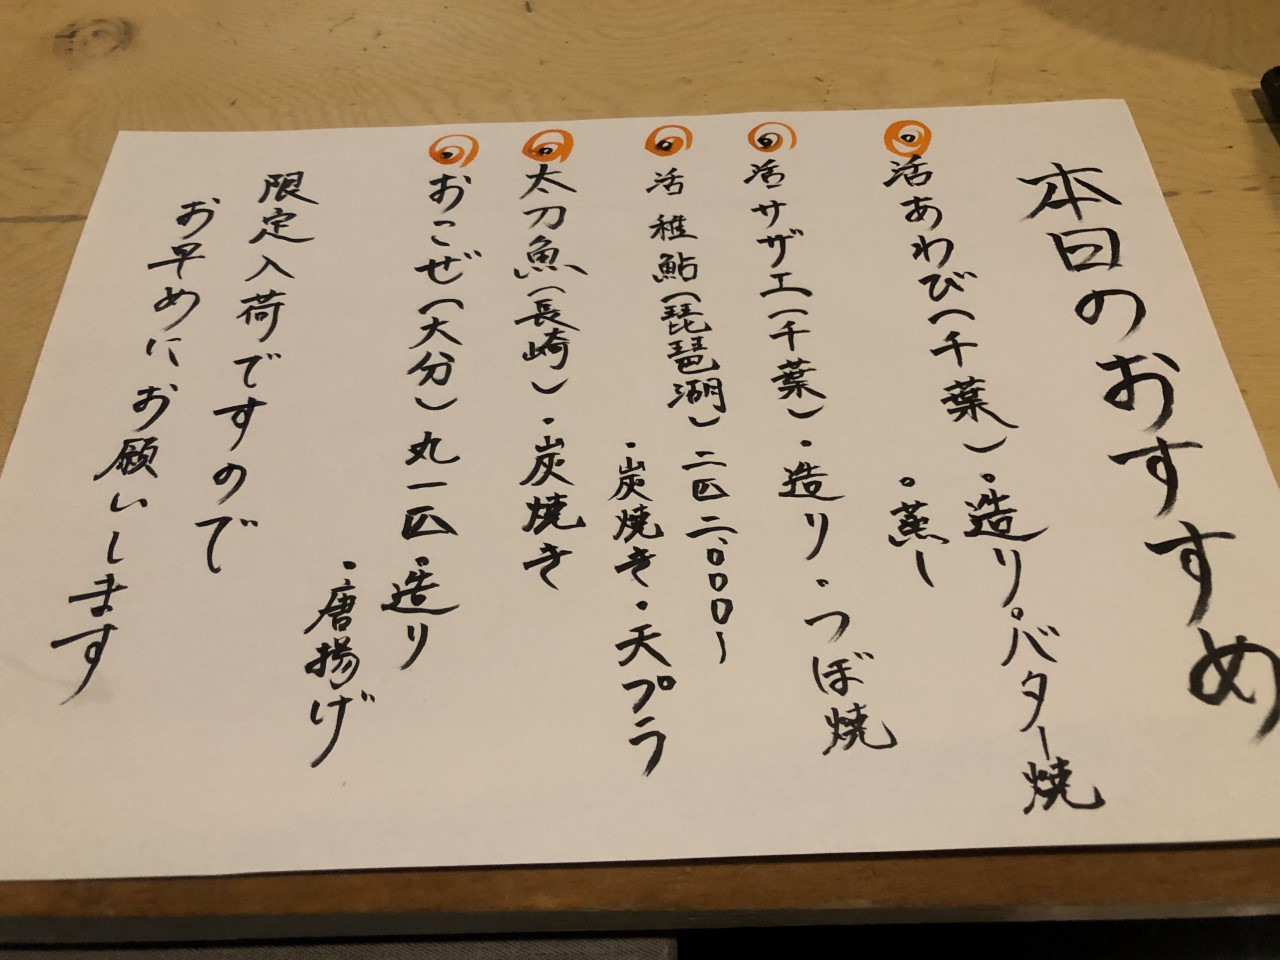 本日のおすすめ
活あわび(千葉)・造り・バター焼
・蒸し
活サザエ(千葉)・造り・つぼ焼
活稚鮎(琵琶湖)二匹二、000〜
・炭焼き・天プラ
太刀魚(長崎)・炭焼き
おこぜ(大分)丸一匹・造り
・唐揚げ
限定入荷ですので
お早めにお願いします